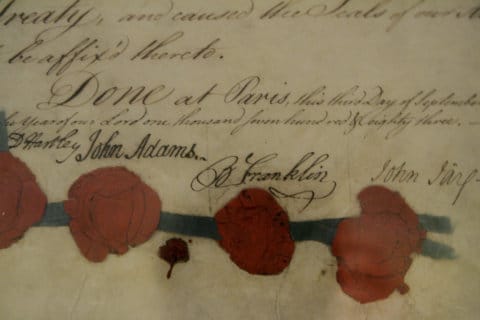 Treaty, and caused the Seals of our
be affix'd thereto.
Done at Paris, this third Day of September
the Year of our Lord one thousand seven hundred & eighty three.
D Hartley John Adams. B Franklin John Jay